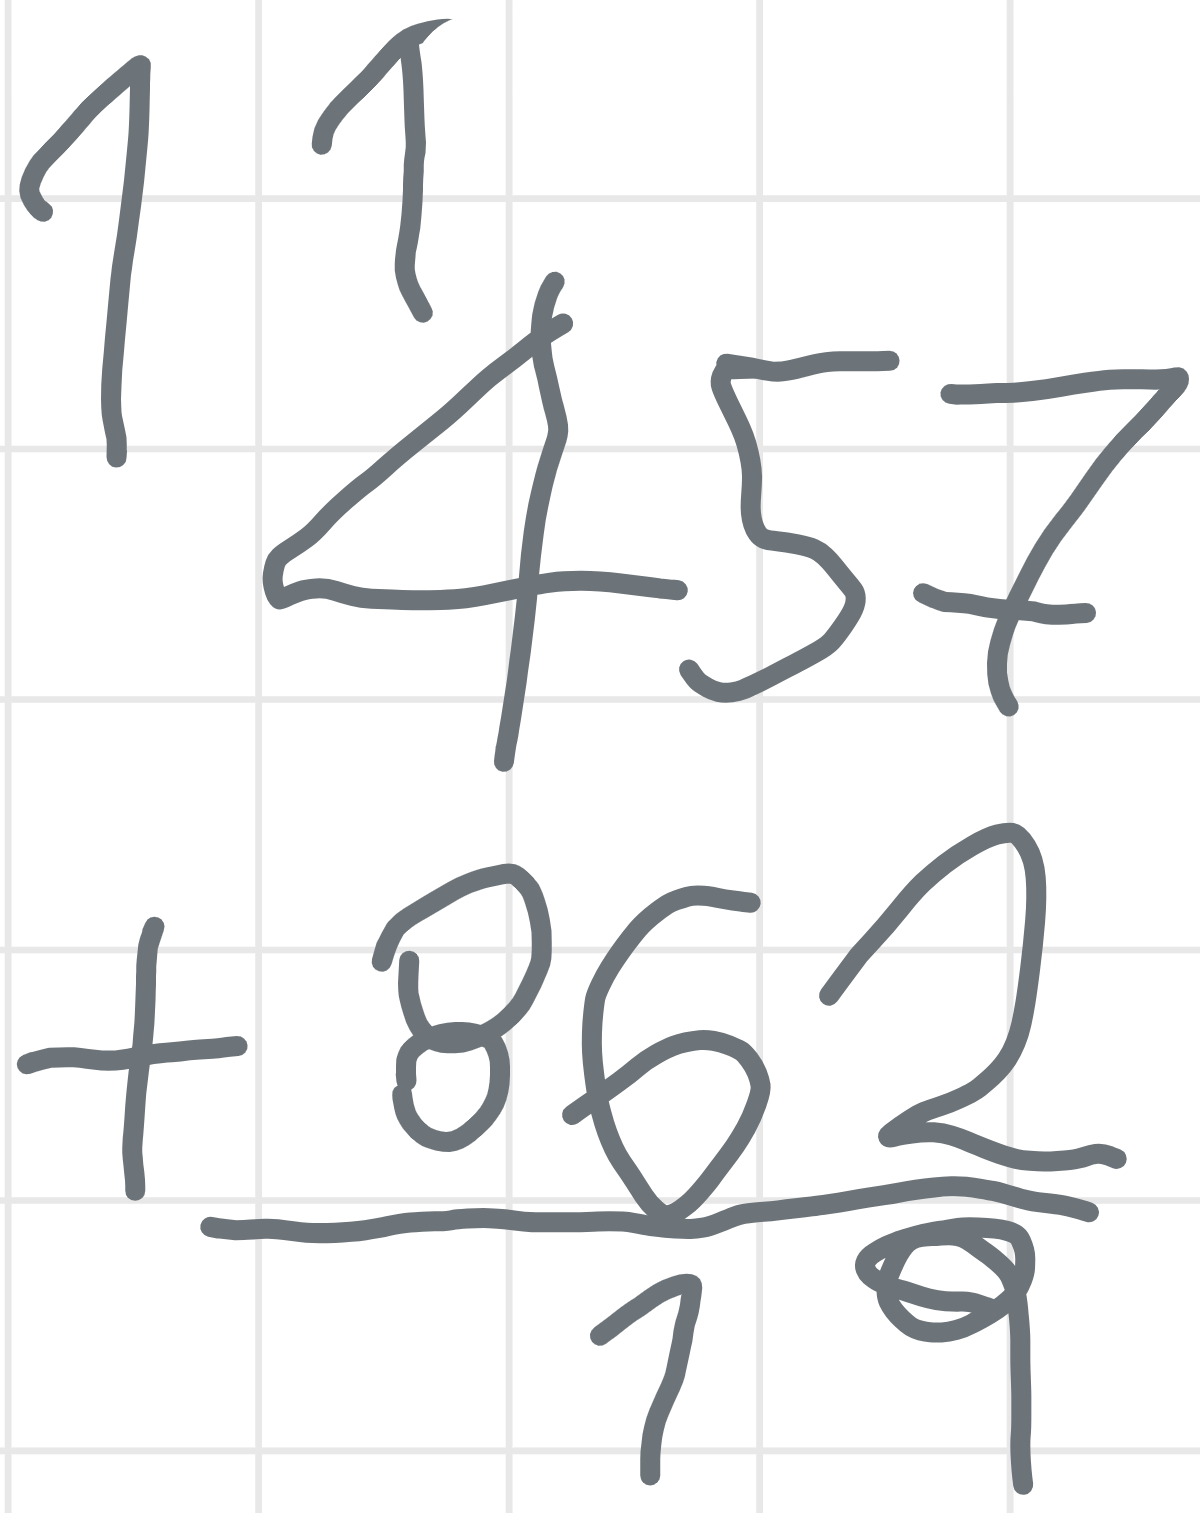 1 1
457
+ 862
19